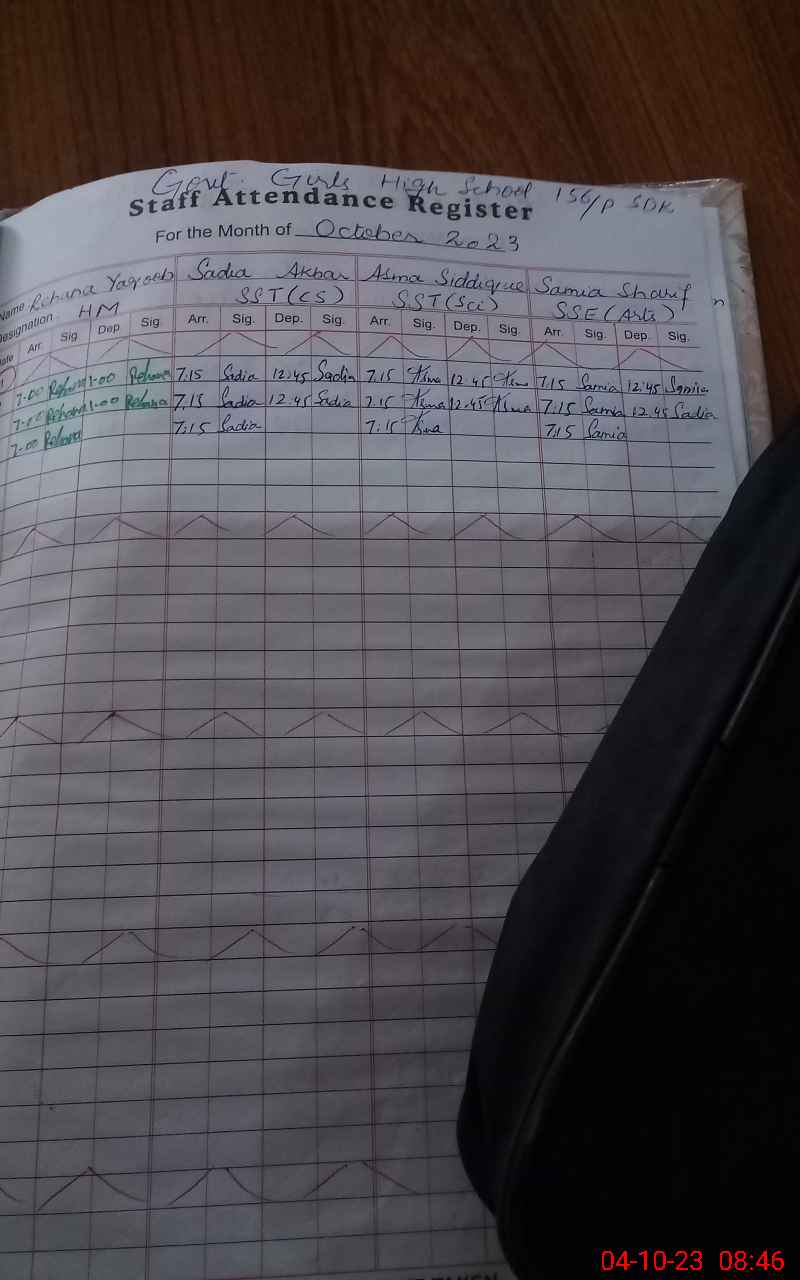 Govt. Girls High School 156/P SDK
Staff Attendance Register
For the Month of October 2023
Name Rehana Yaqoob Sadia Akbar Asma Siddique Samia Sharif
Designation HM SST(CS) SST(Sci) SSE(Arts)
Date Arr. Sig Dep. Sig. Arr. Sig. Dep. Sig. Arr. Sig. Dep. Sig. Arr. Sig. Dep. Sig.
1
7-00 Rehana 1-00 Rehana 7.15 Sadia 12.45 Sadia 7.15 Asma 12.45 Asma 7.15 Samia 12.45 Samia
7-00 Rehana 1-00 Rehana 7.15 Sadia 12.45 Sadia 7.15 Asma 12.45 Asma 7.15 Samia 12.45 Sadia
7-00 Rehana 7.15 Sadia 7.15 Asma 7.15 Samia
04-10-23 08:46